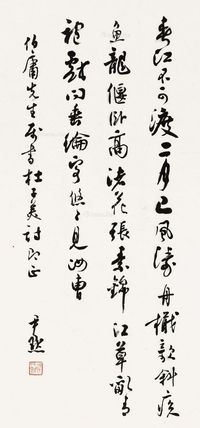 春江不可渡二月已風濤舟檝欹斜疾
魚龍偃卧高渚花張素錦江草亂青
袍戲問垂綸客悠々見汝曹
伯庸先生属書杜子美詩即正
尹默